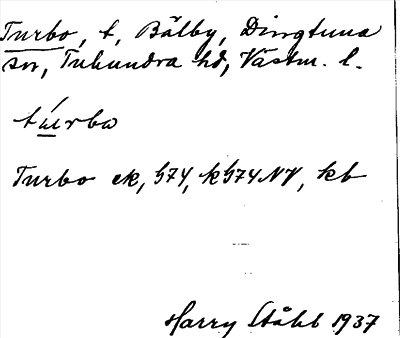 Turbo, t, Bälby, Dingtuna
sn, Tuhundra hd, Västm. l.
túrbo
Turbo ek, 574, k574NV, kb
Harry Ståhl 1937